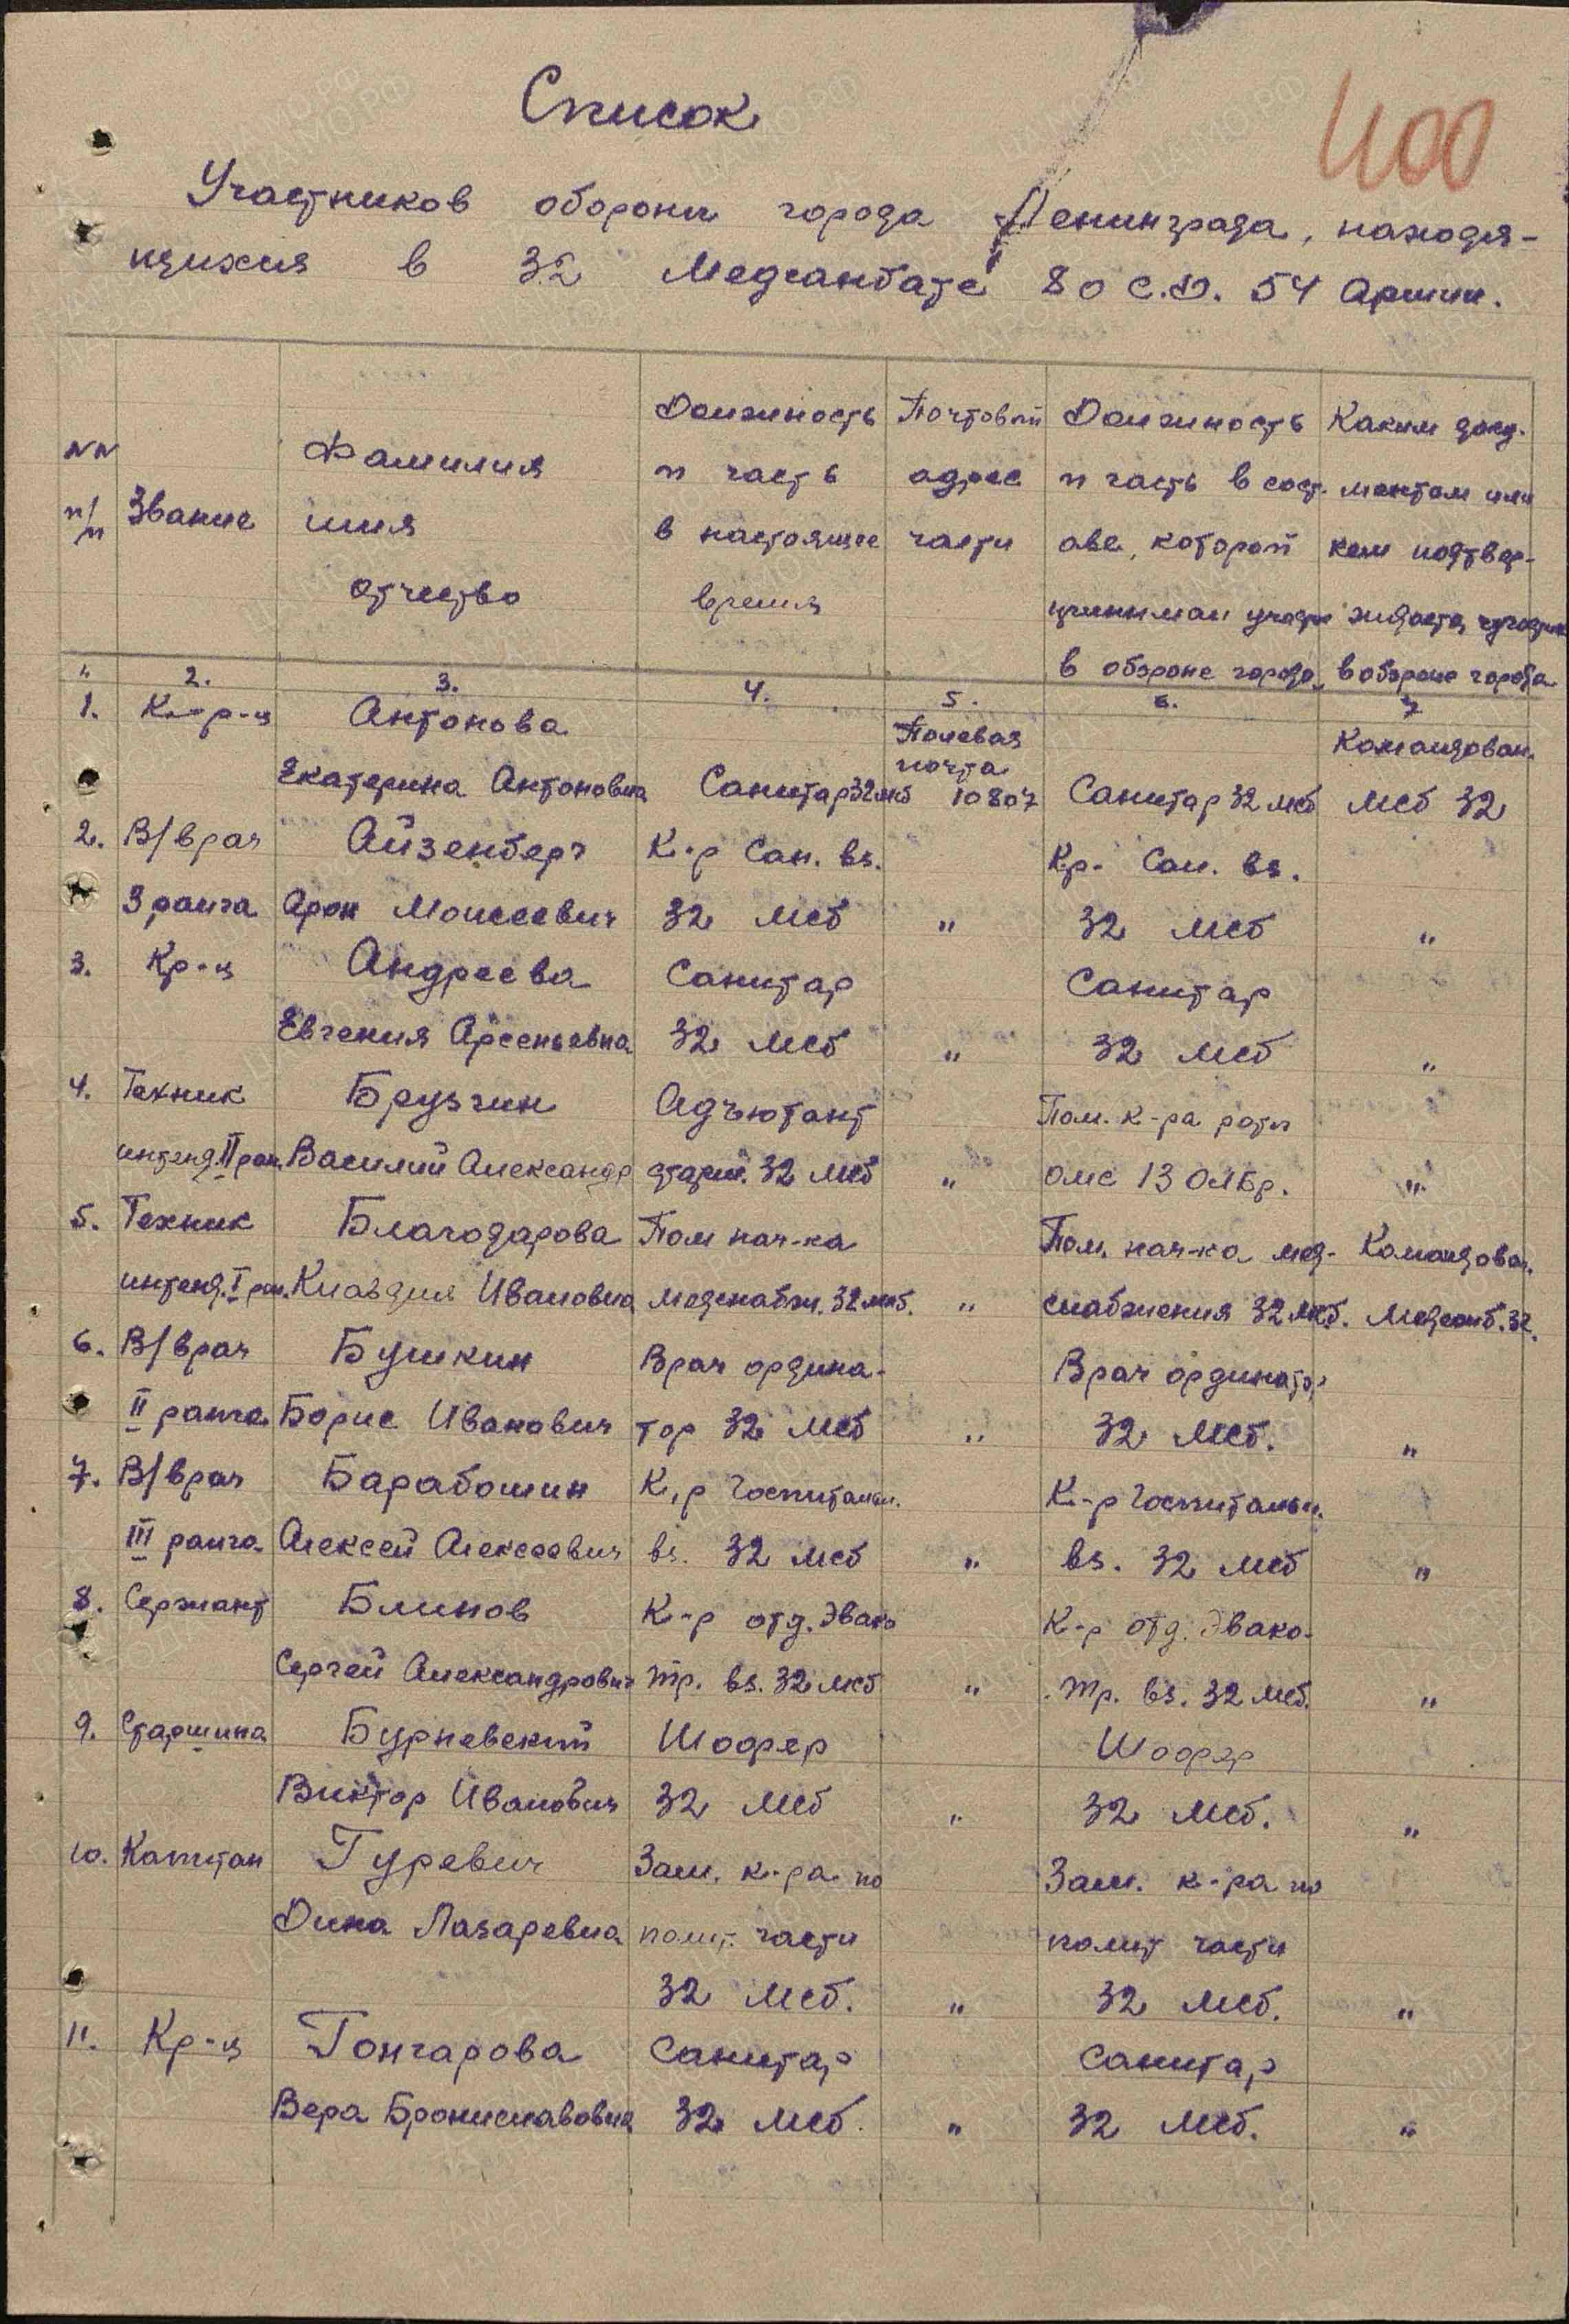 Список
400
Участников обороны города Ленинграда, находя-
щихся в 32 Медсанбате 80 С.Д. 54 Армии.
NN п/п
Звание
Фамилия
имя
отчество
Должность
и часть
в настоящее
время
Почтовый
адрес
части
Должность
и часть в сост-
аве, которой
принимал участие
в обороне города
Каким доку-
ментом или
кем подтвер-
ждается участие
в обороне города
" 2. 3. 4. 5. 6. 7
1. К-р-ц Антонова Полевая Командован.
почта
Екатерина Антоновна Санитар 32 мсб 10807 Санитар 32 мсб Мсб 32
2. В/врач Айзенберг К-р Сан. вз. Кр- Сан. вз.
3 ранга Арон Моисеевич 32 Мсб " 32 Мсб "
3. Кр-ц Андреева Санитар Санитар
Евгения Арсеньевна 32 Мсб " 32 Мсб "
4. Техник Брузгин Адъютант Пом. к-ра роты
интенд. II ран. Василий Александр старш. 32 Мсб " омс 13 ОЛБр. "
5. Техник Благодарова Пом нач-ка Пом. нач-ка мед- Командован.
интенд. I ран. Клавдия Ивановна медснабж. 32 мсб. " снабжения 32 Мсб. Медсанб. 32.
6. В/врач Бушкин Врач ордина- Врач ординатор
II ранга Борис Иванович тор 32 Мсб " 32 Мсб. "
7. В/врач Барабошин К-р Госпитальн. К-р Госпитальн.
III ранга Алексей Алексеевич вз. 32 мсб " вз. 32 мсб "
8. Сержант Блинов К-р отд. Эвако К-р отд. Эвако-
Сергей Александрович тр. вз. 32 мсб " тр. вз. 32 Мсб. "
9. Старшина Бурневский Шофер Шофер
Виктор Иванович 32 Мсб " 32 Мсб. "
10. Капитан Гуревич Зам. к-ра по Зам. к-ра по
Дина Лазаревна полит. части полит части
32 Мсб. " 32 Мсб. "
11. Кр-ц Гончарова Санитар Санитар
Вера Брониславовна 32 Мсб. " 32 Мсб. "